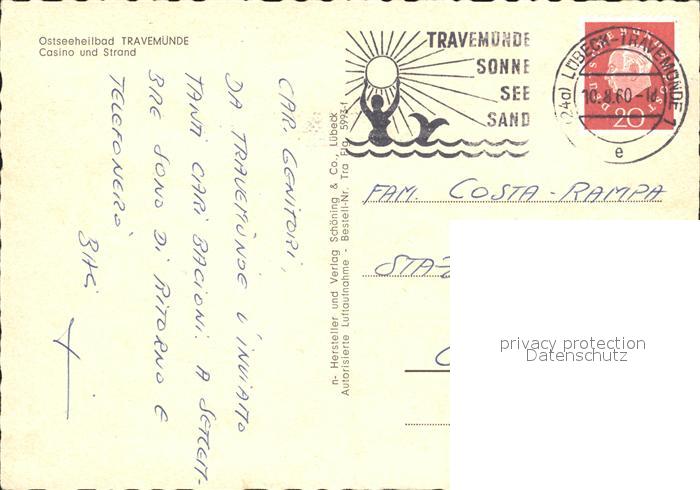 Ostseeheilbad TRAVEMÜNDE
Casino und Strand
CARI GENITORI,
DA TRAVEMÜNDE V'INVIAMO
TANTI CARI BACIONI. A SETTEM-
BRE SONO DI RITORNO E
TELEFONERÒ
n- Hersteller und Verlag Schöning & Co., Lübeck
Autorisierte Luftaufnahme - Bestell-Nr. Tra Flg. 5993-1
TRAVEMÜNDE
SONNE
SEE
SAND
(24a) LÜBECK-TRAVEMÜNDE 1
10.8.60
e
20
FAM. COSTA-RAMPA
privacy protection
Datenschutz